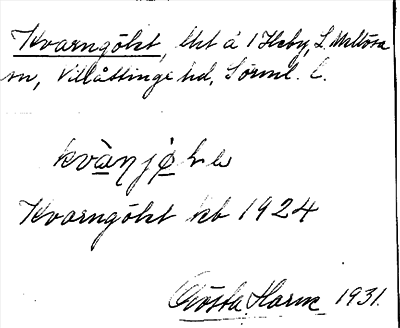 Kvarngölet, lht å 1 Heby, L. Mellösa
sn, Villåttinge hd, Sörml. l.
kvàŋjø
Kvarngölet kb 1924
Gösta Harm 1931.